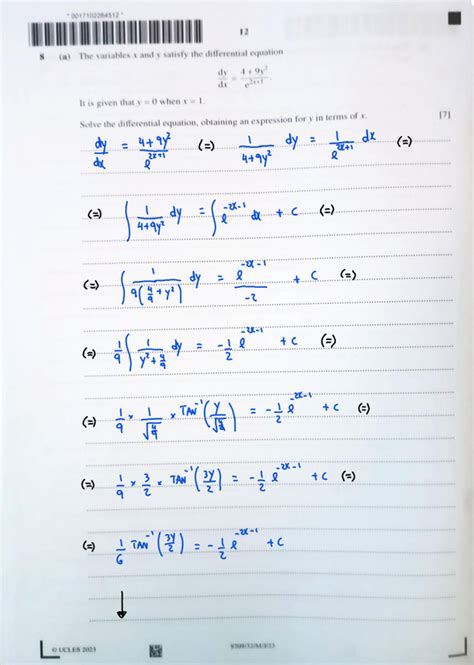 * 0017102264512 *
12
8 (a) The variables x and y satisfy the differential equation
dy/dx = (4 + 9y²)/e^(2x+1).
It is given that y = 0 when x = 1.
Solve the differential equation, obtaining an expression for y in terms of x. [7]
dy/dx = (4+9y²)/e^(2x+1) (=) 1/(4+9y²) dy = 1/e^(2x+1) dx (=)
(=) ∫ 1/(4+9y²) dy = ∫ e^(-2x-1) dx + C (=)
(=) ∫ 1/(9(4/9 + y²)) dy = e^(-2x-1)/-2 + C (=)
(=) 1/9 ∫ 1/(y² + 4/9) dy = -1/2 e^(-2x-1) + C (=)
(=) 1/9 × 1/√(4/9) × TAN⁻¹(y/√(4/9)) = -1/2 e^(-2x-1) + C (=)
(=) 1/9 × 3/2 × TAN⁻¹(3y/2) = -1/2 e^(-2x-1) + C (=)
(=) 1/6 TAN⁻¹(3y/2) = -1/2 e^(-2x-1) + C
↓
© UCLES 2023
9709/32/M/J/23